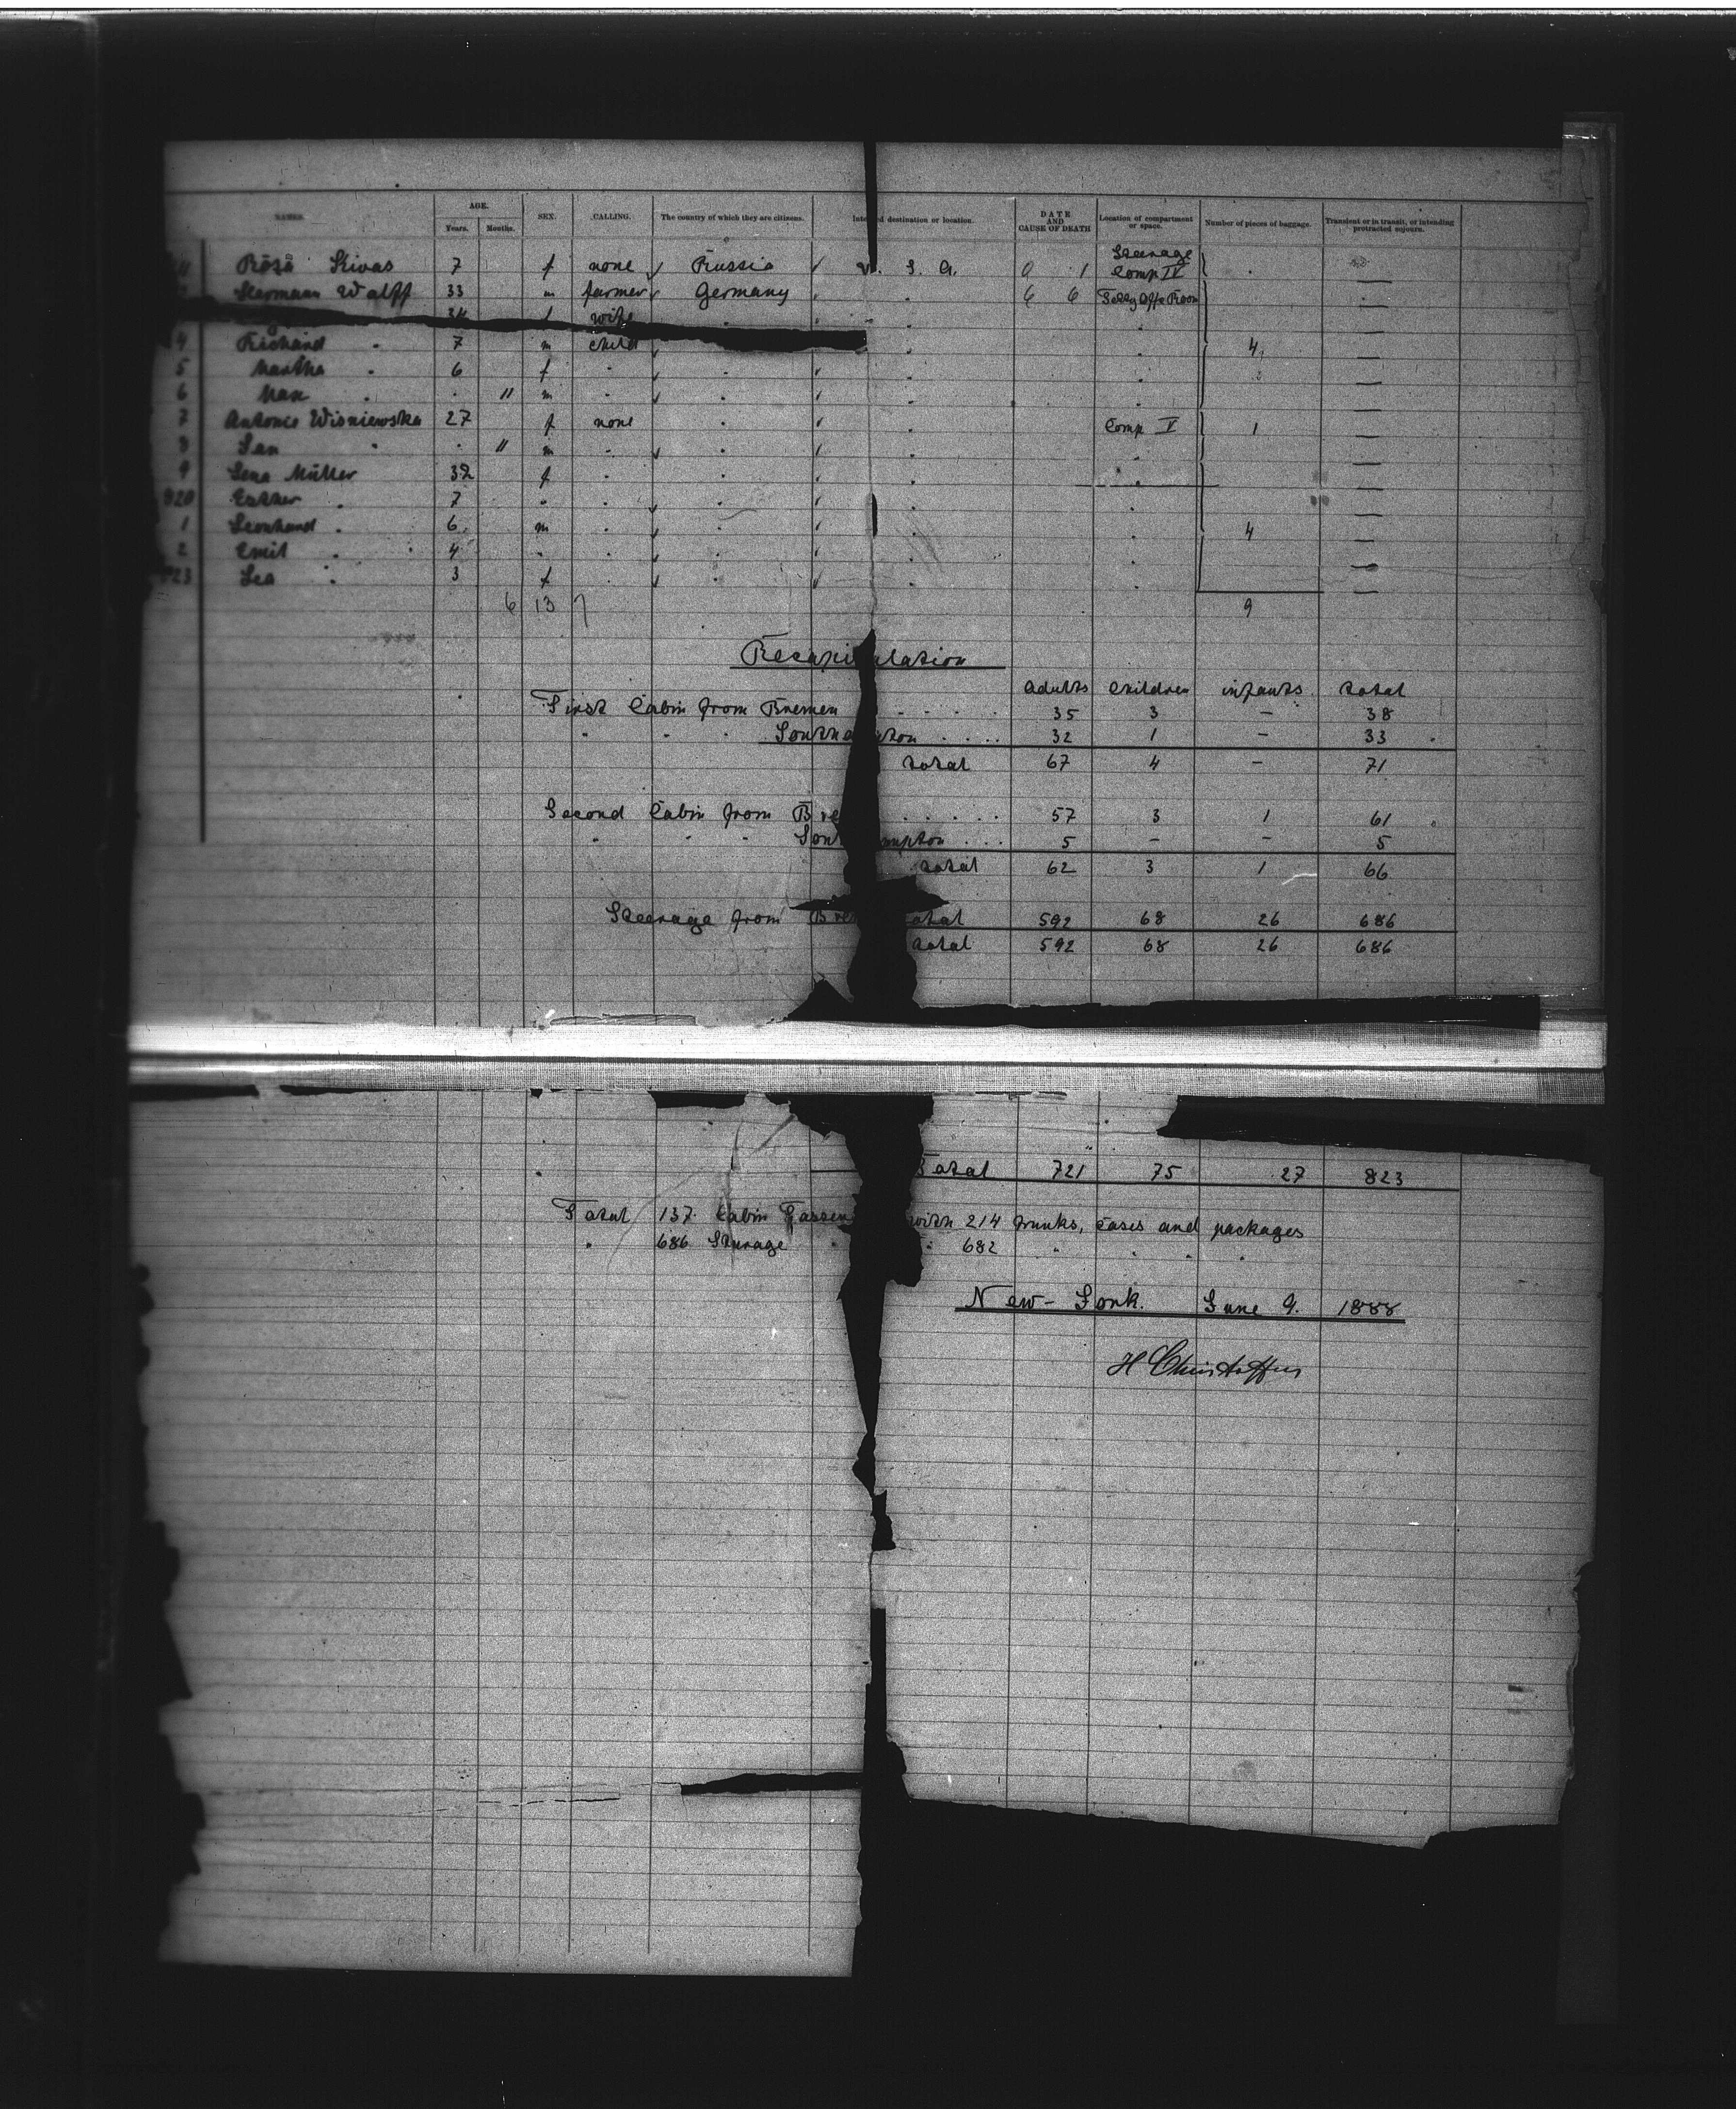 NAMES. AGE. Years. Months. SEX. CALLING. The country of which they are citizens. destination or location. DATE AND CAUSE OF DEATH Location of compartment or space. Number of pieces of baggage. Transient or in transit, or intending protracted sojourn.
Steerage
Rosa 7 f none Russia U. S. A. 0 1 Comp IV
Hermann Wolff 33 m farmer Germany 6 6
34 f wife
4 Richard " 7 m child 4
5 Martha " 6 f "
6 Max " " 11 m "
7 Antonie Wisniewska 27 f none " Comp V 1
8 Jan " " 11 m "
9 Lena Müller 32 f "
820 Esther " 7 " "
1 Leonhard " 6 m " 4
2 Emil " 4 " "
823 Lea " 3 f "
6 13 7 9
Recapitulation
adults children infants total
First Cabin from Bremen . . . . 35 3 — 38
" " " Southampton . . . . 32 1 — 33
total 67 4 — 71
Second Cabin from Bre . . . . . 57 3 1 61
" " " Southampton . . . 5 — — 5
total 62 3 1 66
Steerage from Bre total 592 68 26 686
total 592 68 26 686
Total 721 75 27 823
Total 137 Cabin Passen with 214 trunks, cases and packages
" 686 Steerage " " 682 " " " "
New-York. June 9. 1888
H Christoffers